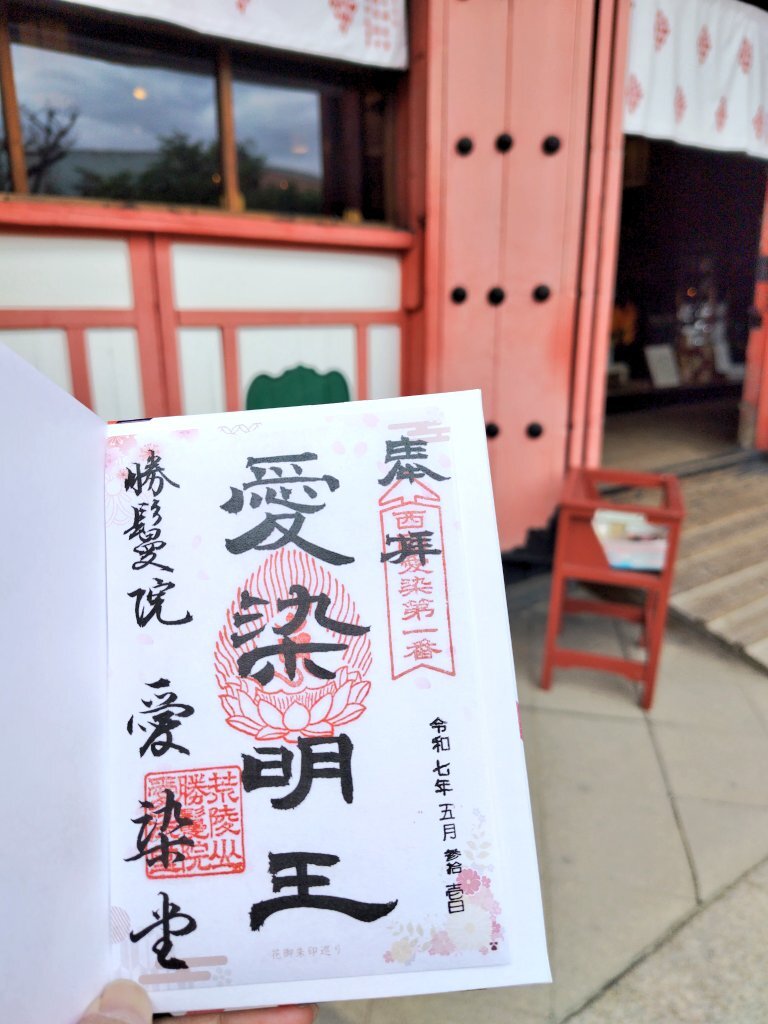 奉拝
西愛染第一番
令和七年五月参拾壱日
愛染明王
勝鬘院
愛染堂
荒陵山
勝鬘院
花御朱印巡り